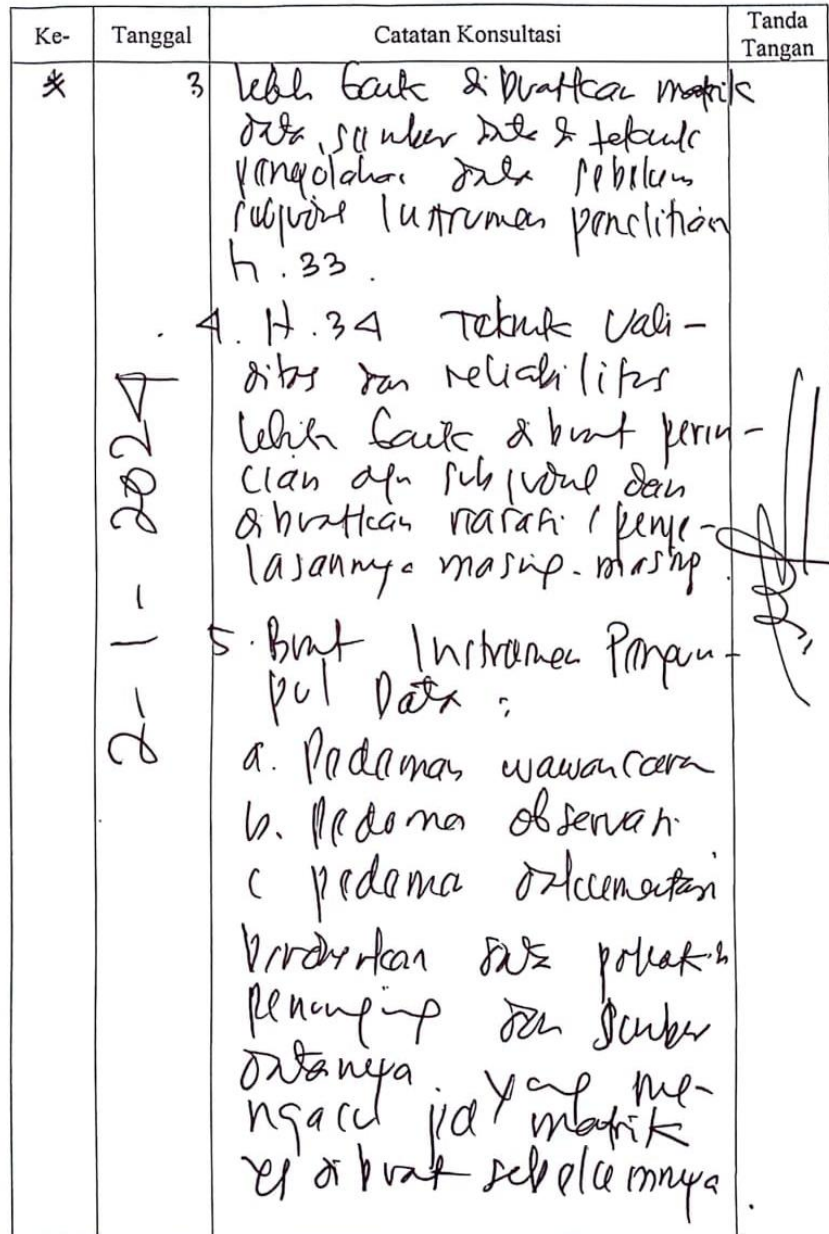 Ke-
Tanggal
Catatan Konsultasi
Tanda
Tangan
3 lebih baik dibuatkan matrik
data, sumber data & teknik
pengolahan data sebelum
subjudul Instrumen penelitian
h. 33.
4. H. 34 Teknik Vali-
ditas dan reliabilitas
lebih baik dibuat perin-
cian dgn sub judul dan
dibuatkan narasi / penje-
lasannya masing-masing.
2-1-2024
5. Buat Instrumen Pengum-
pul Data:
a. Pedoman wawancara
b. Pedoman observasi
c pedoman dokumentasi
berdasarkan data pokok &
penunjang dan sumber
datanya. yang me-
ngacu pd matrik
yg dibuat sebelumnya.